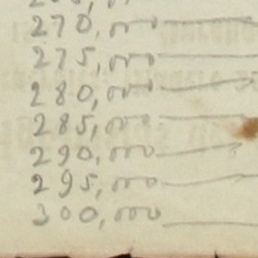 270,000
275,000
280,000
285,000
290,000
295,000
300,000